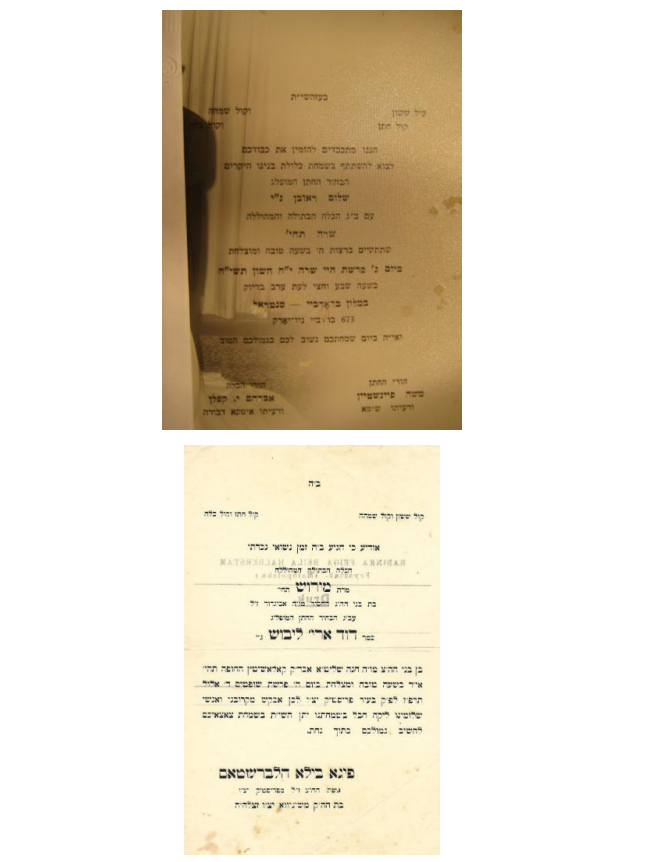 בעזהשי״ת
קול ששון וקול שמחה
קול חתן וקול כלה
הננו מתכבדים להזמין את כבודכם
לבוא להשתתף בשמחת כלולת בנינו היקרים
הבחור החתן המופלג
שלום ראובן נ״י
עם ב״ג הכלה הבתולה והמהוללה
שרה תחי׳
שתתקיים ברצות ה׳ בשעה טובה ומוצלחת
ביום ג׳ פרשת חיי שרה י״ח חשון תשי״ח
בשעה שבע וחצי לעת ערב בדיוק
במלון — סנטראל
623 ברודביי ניו־יארק
ואי״ה ביום שמחתכם נשוב לכם כגמולכם הטוב
הורי החתן הורי הכלה
משה פיינשטיין אברהם י. קפלן
ורעיתו שימא ורעיתו דבורה
ב״ה
קול ששון וקול שמחה קול חתן וקול כלה
אודיע כי הגיע ב״ה זמן נשואי נכדתי
RADINKA FEIGA BEILA HALBERSTAM
הכלה הבתולה המהוללה
מרת מירוש תחי׳
Druk
בת בני הה״ג מו״ה אביגדור ז״ל
עב״ג הבחור החתן המופלג
כמר דוד ארי׳ ליבוש נ״י
בן בני הה״צ מו״ה חנה שליט״א אבד״ק קאלאשיטץ החופה תהי׳
אי״ה בשעה טובה ומצלחת ביום ה׳ פרשת שופטים ה׳ אלול
תרפ״ז לפ״ק בעיר פריסטיק יצ״ו לכן אבקש מקרובנו ואנשי
שלומינו ליקח חבל בשמחתנו יתן השי״ת בשמחת צאצאיכם
להשיב גמולכם בתוך נחת.
פיגא בילא הלברשטאם
אשת הה״ג ז״ל בפריסטיק יצ״ו
בת הה״ק משינאווא יצ״ו זצלה״ה